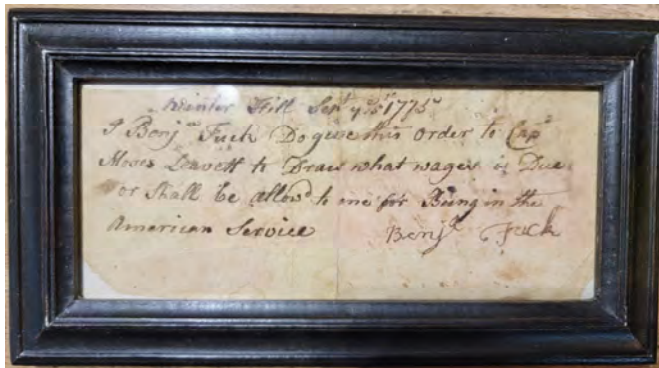 Winter Hill Sept 1775
I Benjn Tuck Do give this Order to Capt
Moses Leavett to Draw what wages is Due
or Shall be allowd to me for Being in the
American Service Benjn Tuck